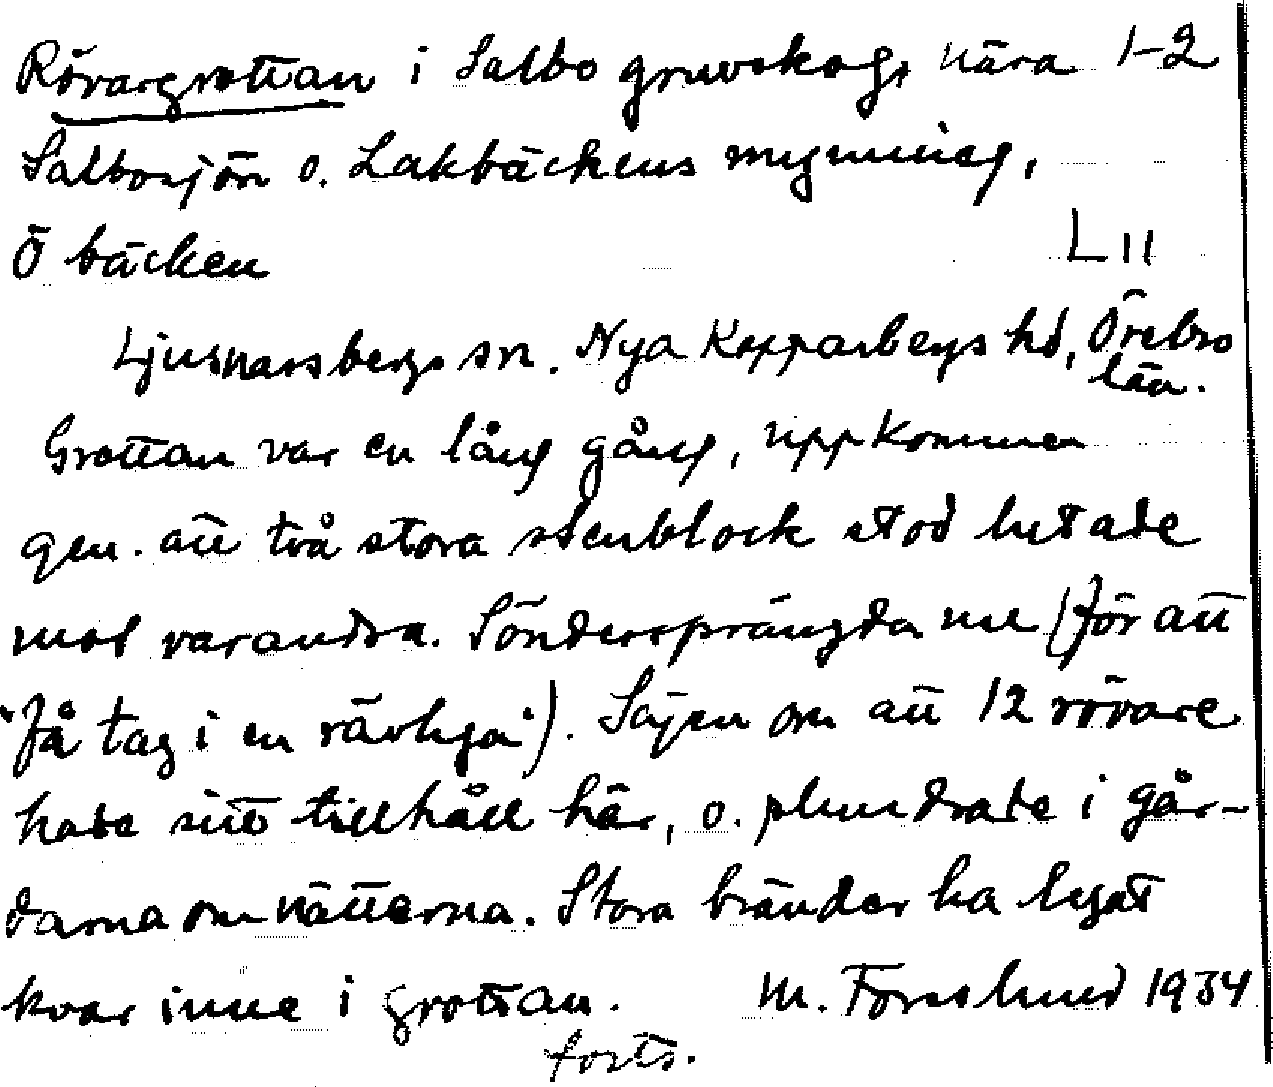 Rövargrottan i Salbo gruvskog, nära 1-2
Salbosjön o. Lakbäckens mynning,
Ö bäcken
L 11
Ljusnarsbergs sn. Nya Kopparbergs hd, Örebro
län.
Grottan var en lång gång, uppkommen
gen. att två stora stenblock stod lutade
mot varandra. Söndersprängda nu (för att
"få tag i en rävlya"). Sägen om att 12 rövare
hade sitt tillhåll här, o. plundrade i går-
darna om nätterna. Stora bränder ha legat
kvar inne i grottan. M. Forsslund 1934
forts.